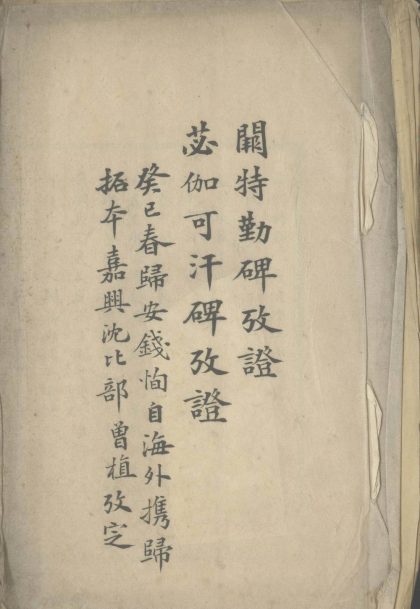 闕特勤碑攷證
苾伽可汗碑攷證
癸巳春歸安錢恂自海外攜歸
拓本嘉興沈比部曾植攷定